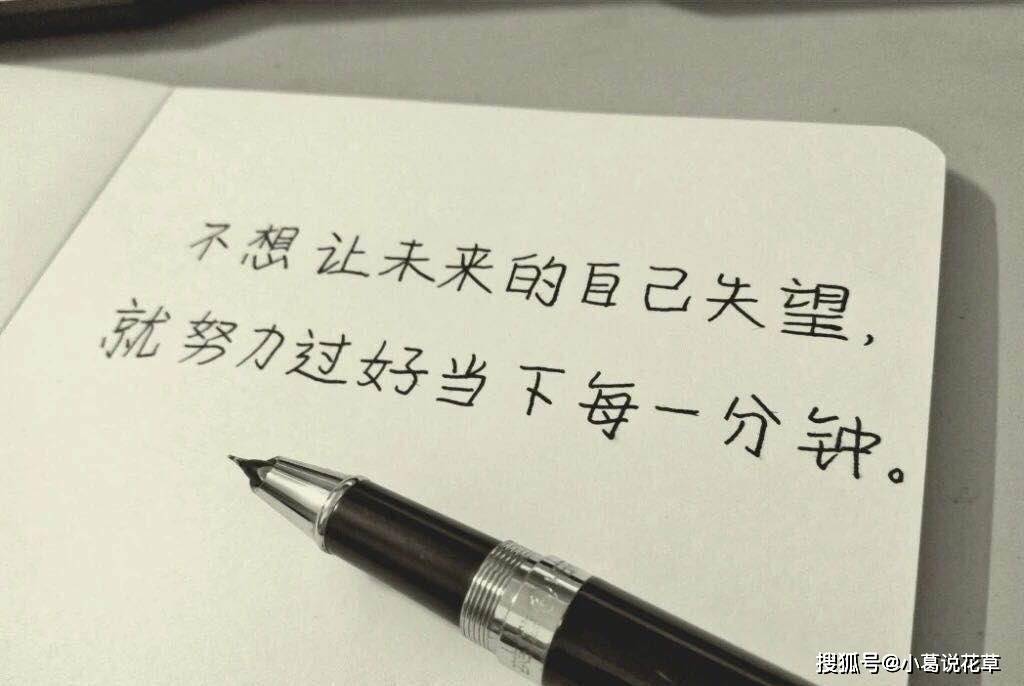 不想让未来的自己失望,
就努力过好当下每一分钟。
搜狐号@小葛说花草